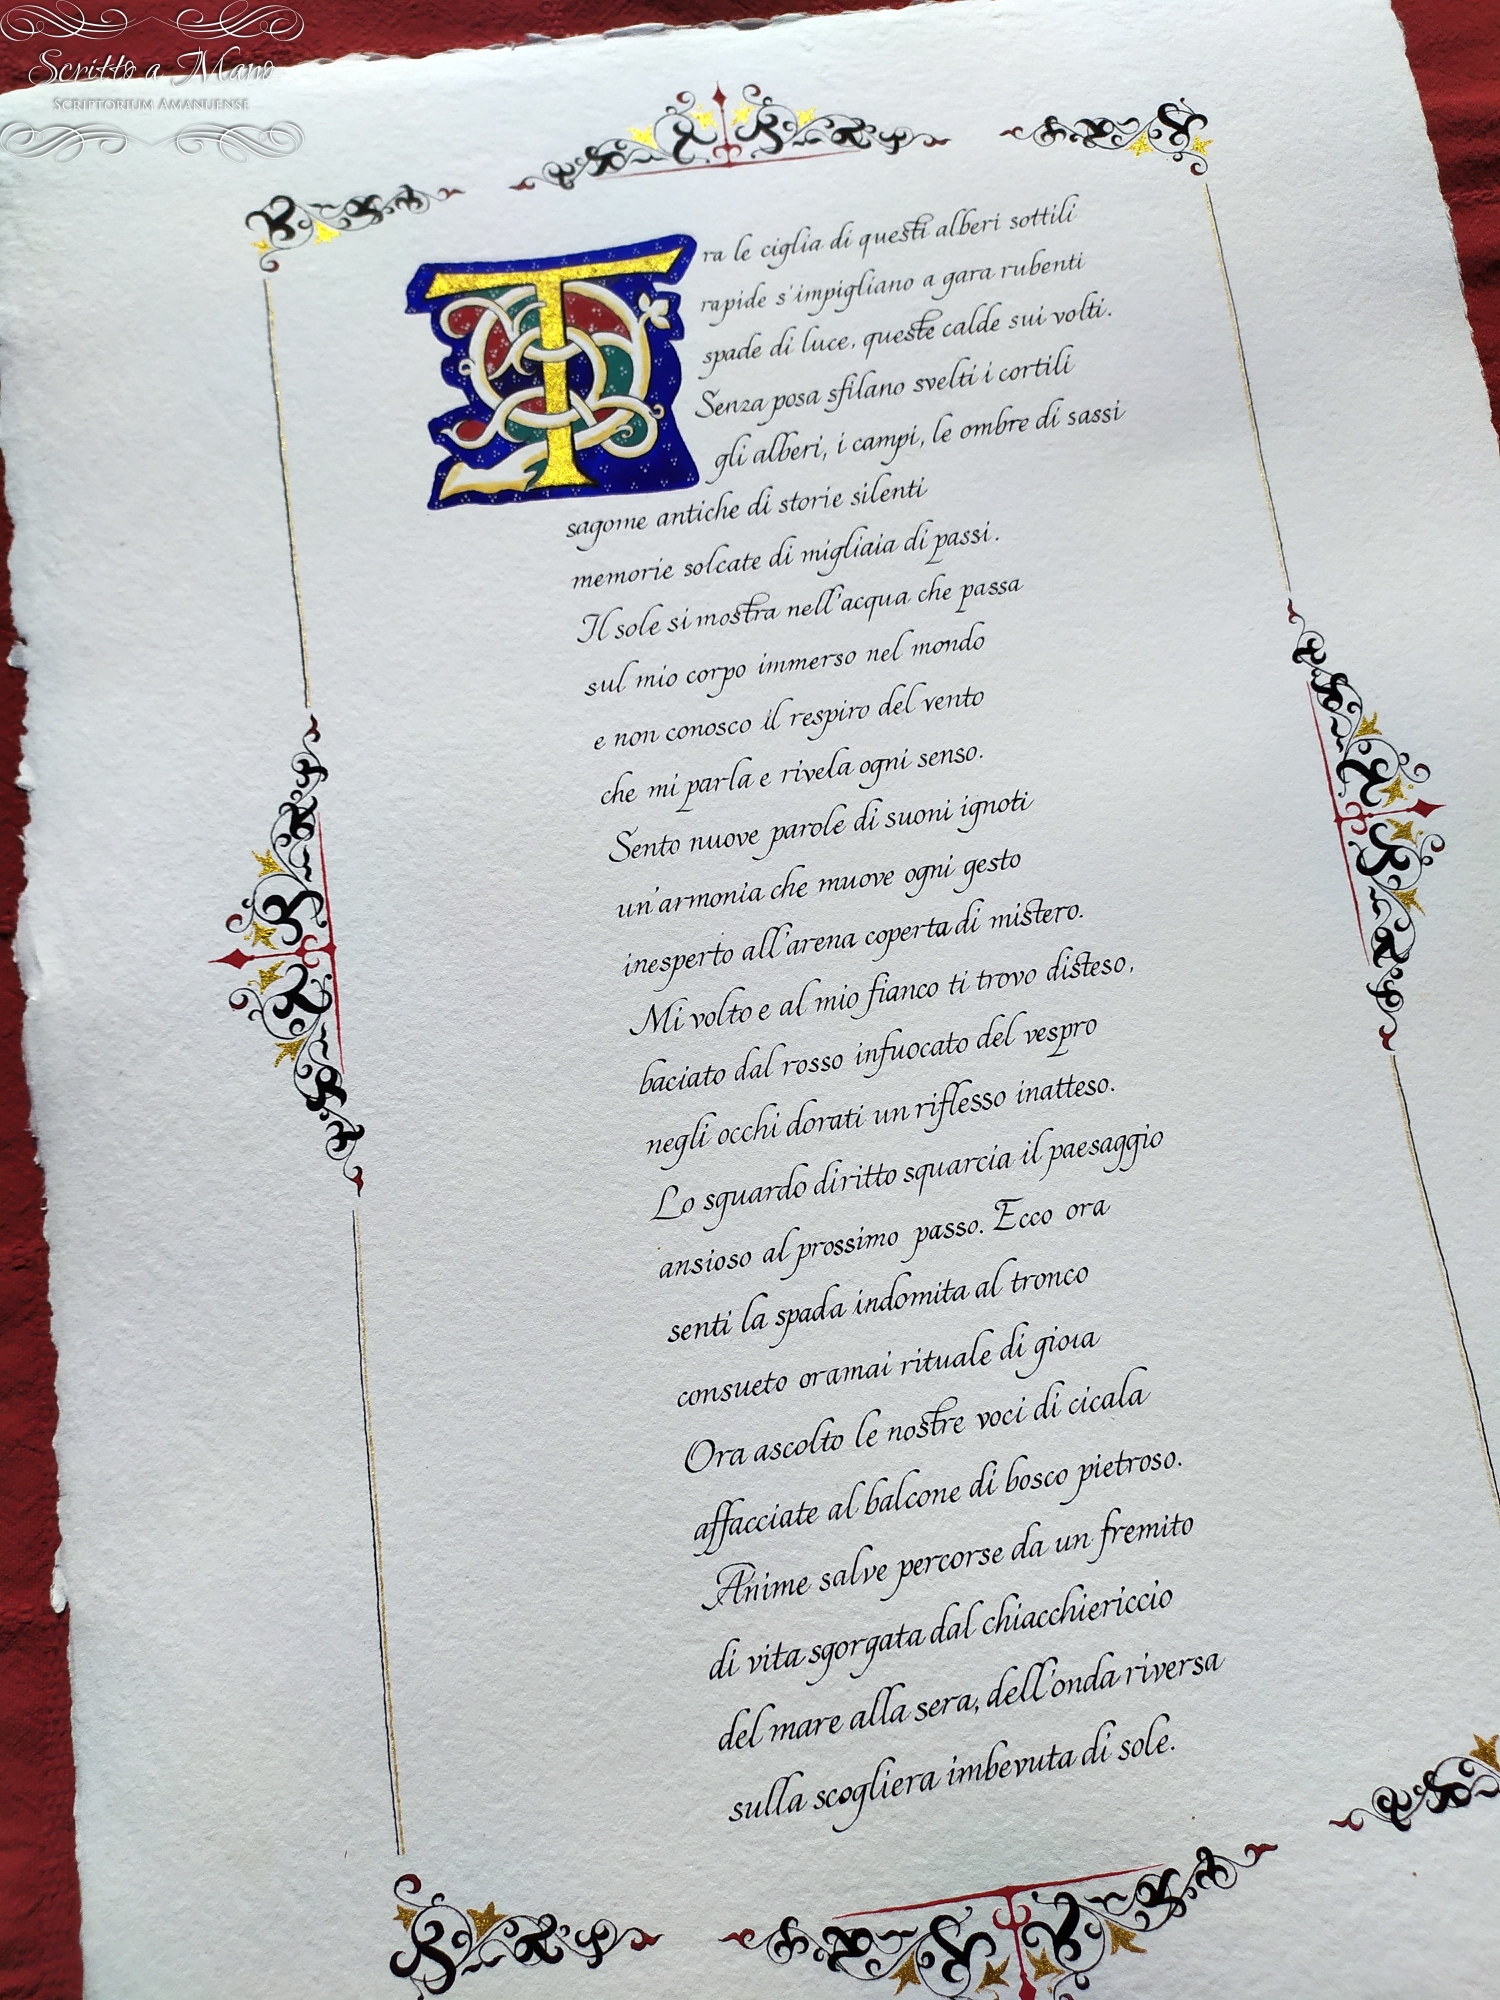 Scritto a Mano
Scriptorium Amanuense
Tra le ciglia di questi alberi sottili
rapide s'impigliano a gara rubenti
spade di luce, queste calde sui volti.
Senza posa sfilano svelti i cortili
gli alberi, i campi, le ombre di sassi
sagome antiche di storie silenti
memorie solcate di migliaia di passi.
Il sole si mostra nell'acqua che passa
sul mio corpo immerso nel mondo
e non conosco il respiro del vento
che mi parla e rivela ogni senso.
Sento nuove parole di suoni ignoti
un'armonia che muove ogni gesto
inesperto all'arena coperta di mistero.
Mi volto e al mio fianco ti trovo disteso,
baciato dal rosso infuocato del vespro
negli occhi dorati un riflesso inatteso.
Lo sguardo diritto squarcia il paesaggio
ansioso al prossimo passo. Ecco ora
senti la spada indomita al tronco
consueto oramai rituale di gioia
Ora ascolto le nostre voci di cicala
affacciate al balcone di bosco pietroso.
Anime salve percorse da un fremito
di vita sgorgata dal chiacchiericcio
del mare alla sera, dell'onda riversa
sulla scogliera imbevuta di sole.